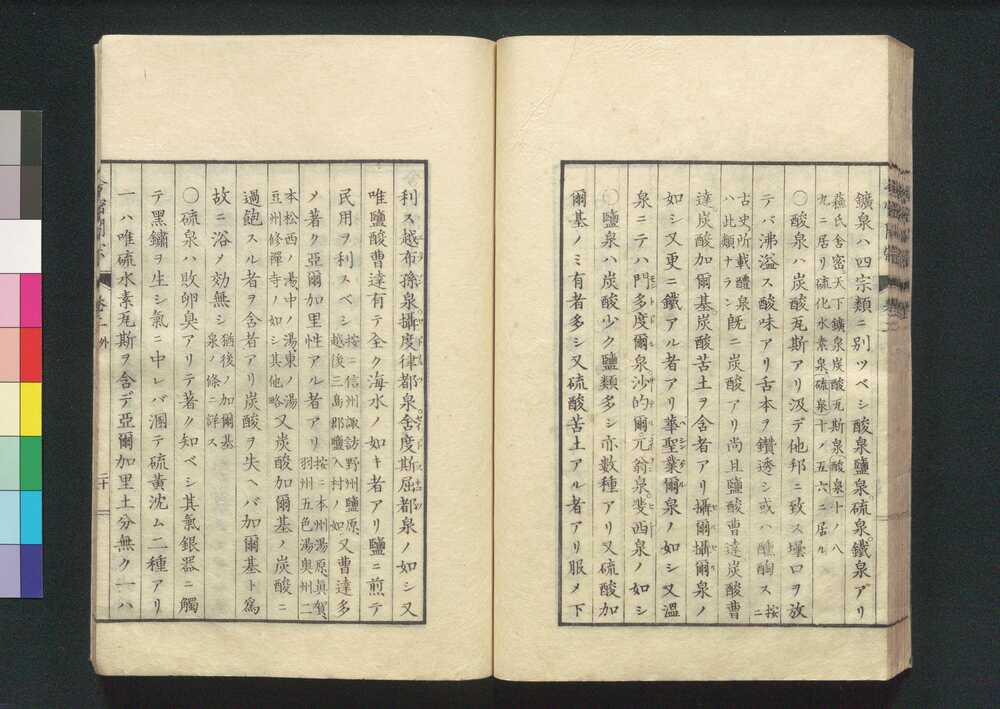 鑛泉ハ四宗類ニ別ツベシ酸泉鹽泉硫泉鐵泉アリ
蘊氏舎密云天下鑛泉炭酸瓦斯泉酸泉十ノ八
九ニ居リ硫化水素泉硫泉十ノ五六ニ居ル
〇酸泉ハ炭酸瓦斯アリ汲デ他邦ニ致ス壜口ヲ放
テバ沸溢ス酸味アリ舌本ヲ鑽透シ或ハ醺酣ス按ニ
古史所載醴泉
ハ此類ナラン既ニ炭酸アリ尚且鹽酸曹達炭酸曹
達炭酸加爾基炭酸苦土ヲ含者アリ攝爾攝爾泉ノ
如シ又更ニ鐵アル者アリ華聖業爾泉ノ如シ又温
泉ニテハ門多度爾泉沙的爾元翁泉斐西泉ノ如シ
〇鹽泉ハ炭酸少ク鹽類多シ亦數種アリ又硫酸加
爾基ノミ有者多シ又硫酸苦土アル者アリ服メ下
利ス越布孫泉攝度律都泉舎度斯屈都泉ノ如シ又
唯鹽酸曹達有テ全ク海水ノ如キ者アリ鹽ニ煎テ
民用ヲ利スベシ按ニ信州諏訪野州鹽原
越後三島郡鹽入村ノ如又曹達多
ノ著ク亞爾加里性アル者アリ按ニ本州湯原眞賀
羽州五色湯奥州二
本松西ノ湯中ノ湯東ノ湯
豆州修禪寺ノ如シ其他略又炭酸加爾基ノ炭酸ニ
過飽スル者ヲ含者アリ炭酸ヲ失ヘバ加爾基ト爲
故ニ浴メ効無シ猶後ノ加爾基
泉ノ條ニ詳ス
〇硫泉ハ敗卵臭アリテ著ク知ベシ其氣銀器ニ觸
テ黒鏽ヲ生シ氣ニ中レバ溷テ硫黄沈ム二種アリ
一ハ唯硫水素瓦斯ヲ含デ亞爾加里土分無ク一ハ
卷二外
二十